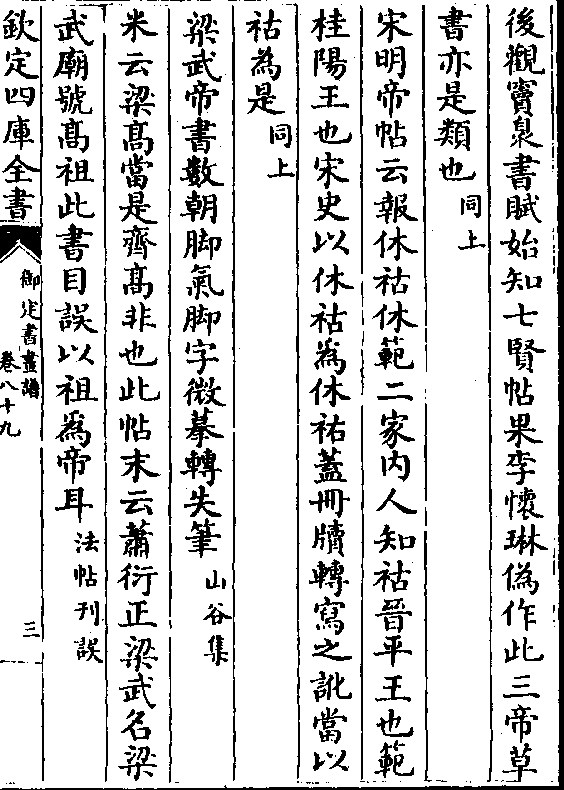 後觀竇臮書賦始知七賢帖果李懷琳偽作此三帝草
書亦是類也同上
宋明帝帖云報休祜休範二家内人知祜晉平王也範
桂陽王也宋史以休祜為休祐蓋冊牘轉寫之訛當以
祜為是同上
梁武帝書數朝脚氣脚字微摹轉失筆山谷集
米云梁髙當是齊髙非也此帖末云蕭衍正梁武名梁
武廟號髙祖此書目誤以祖為帝耳法帖刋誤
欽定四庫全書
御定書畫譜
卷八十九
三